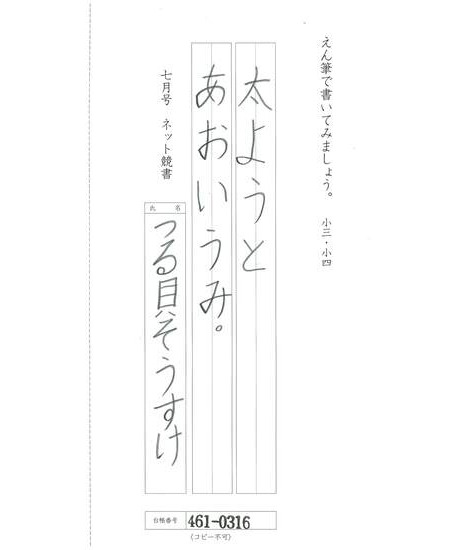 えん筆で書いてみましょう。 小三・小四
太ようと
あおいうみ。
七月号 ネット競書
氏名
つる見そうすけ
台帳番号 461-0316
(コピー不可)